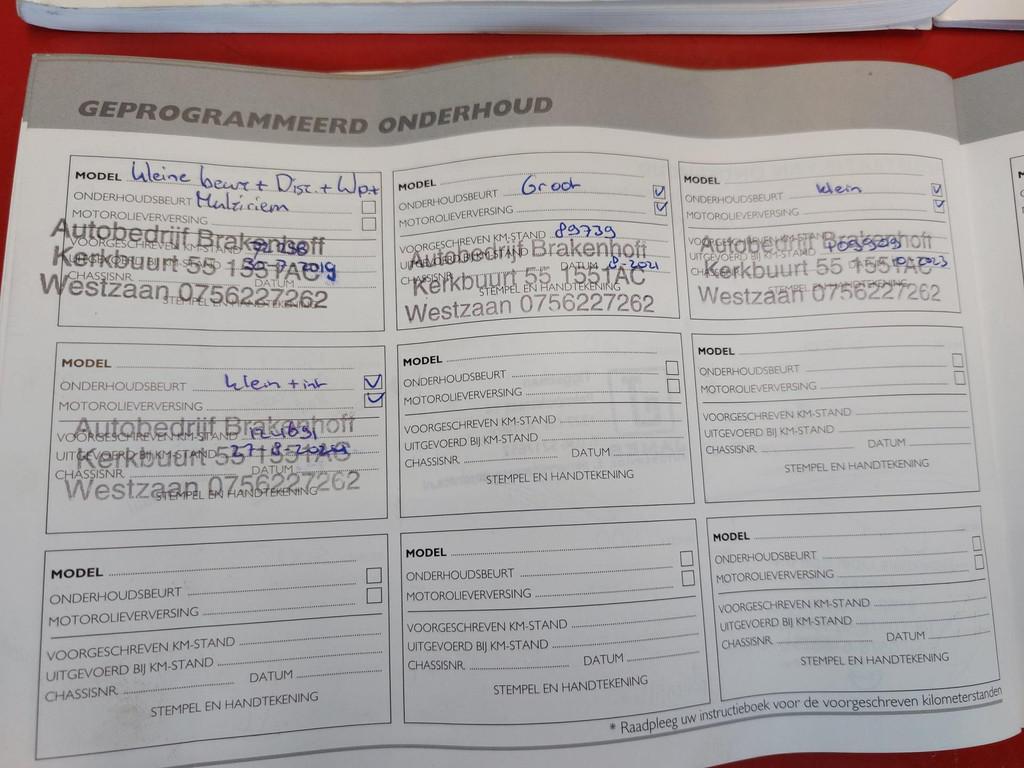 GEPROGRAMMEERD ONDERHOUD
MODEL kleine beurt + Disc. + Wp+
ONDERHOUDSBEURT Multiriem
MOTOROLIEVERVERSING
VOORGESCHREVEN KM-STAND
CHASSISNR. DATUM 2019
STEMPEL EN HANDTEKENING
Autobedrijf Brakenhoff
Kerkbuurt 55 1551AC
Westzaan 0756227262
MODEL
ONDERHOUDSBEURT Groot
MOTOROLIEVERVERSING
VOORGESCHREVEN KM-STAND 89739
DATUM 8-2021
STEMPEL EN HANDTEKENING
Autobedrijf Brakenhoff
Kerkbuurt 55 1551AC
Westzaan 0756227262
MODEL
ONDERHOUDSBEURT klein
MOTOROLIEVERVERSING
UITGEVOERD BIJ KM-STAND
2023
STEMPEL EN HANDTEKENING
Autobedrijf Brakenhoff
Kerkbuurt 55 1551AC
Westzaan 0756227262
MODEL
ONDERHOUDSBEURT klein + int
MOTOROLIEVERVERSING
VOORGESCHREVEN KM-STAND
UITGEVOERD BIJ KM-STAND
CHASSISNR. DATUM
STEMPEL EN HANDTEKENING
Autobedrijf Brakenhoff
Kerkbuurt 55 1551AC
Westzaan 0756227262
MODEL
ONDERHOUDSBEURT
MOTOROLIEVERVERSING
VOORGESCHREVEN KM-STAND
UITGEVOERD BIJ KM-STAND
CHASSISNR. DATUM
STEMPEL EN HANDTEKENING
MODEL
ONDERHOUDSBEURT
MOTOROLIEVERVERSING
VOORGESCHREVEN KM-STAND
UITGEVOERD BIJ KM-STAND
CHASSISNR. DATUM
STEMPEL EN HANDTEKENING
MODEL
ONDERHOUDSBEURT
MOTOROLIEVERVERSING
VOORGESCHREVEN KM-STAND
UITGEVOERD BIJ KM-STAND
CHASSISNR. DATUM
STEMPEL EN HANDTEKENING
MODEL
ONDERHOUDSBEURT
MOTOROLIEVERVERSING
VOORGESCHREVEN KM-STAND
UITGEVOERD BIJ KM-STAND
CHASSISNR. DATUM
STEMPEL EN HANDTEKENING
MODEL
ONDERHOUDSBEURT
MOTOROLIEVERVERSING
VOORGESCHREVEN KM-STAND
UITGEVOERD BIJ KM-STAND
CHASSISNR. DATUM
STEMPEL EN HANDTEKENING
* Raadpleeg uw instructieboek voor de voorgeschreven kilometerstanden